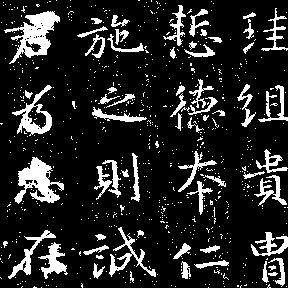 珪組貴冑
懿德本仁
施之則誠
君為忠在